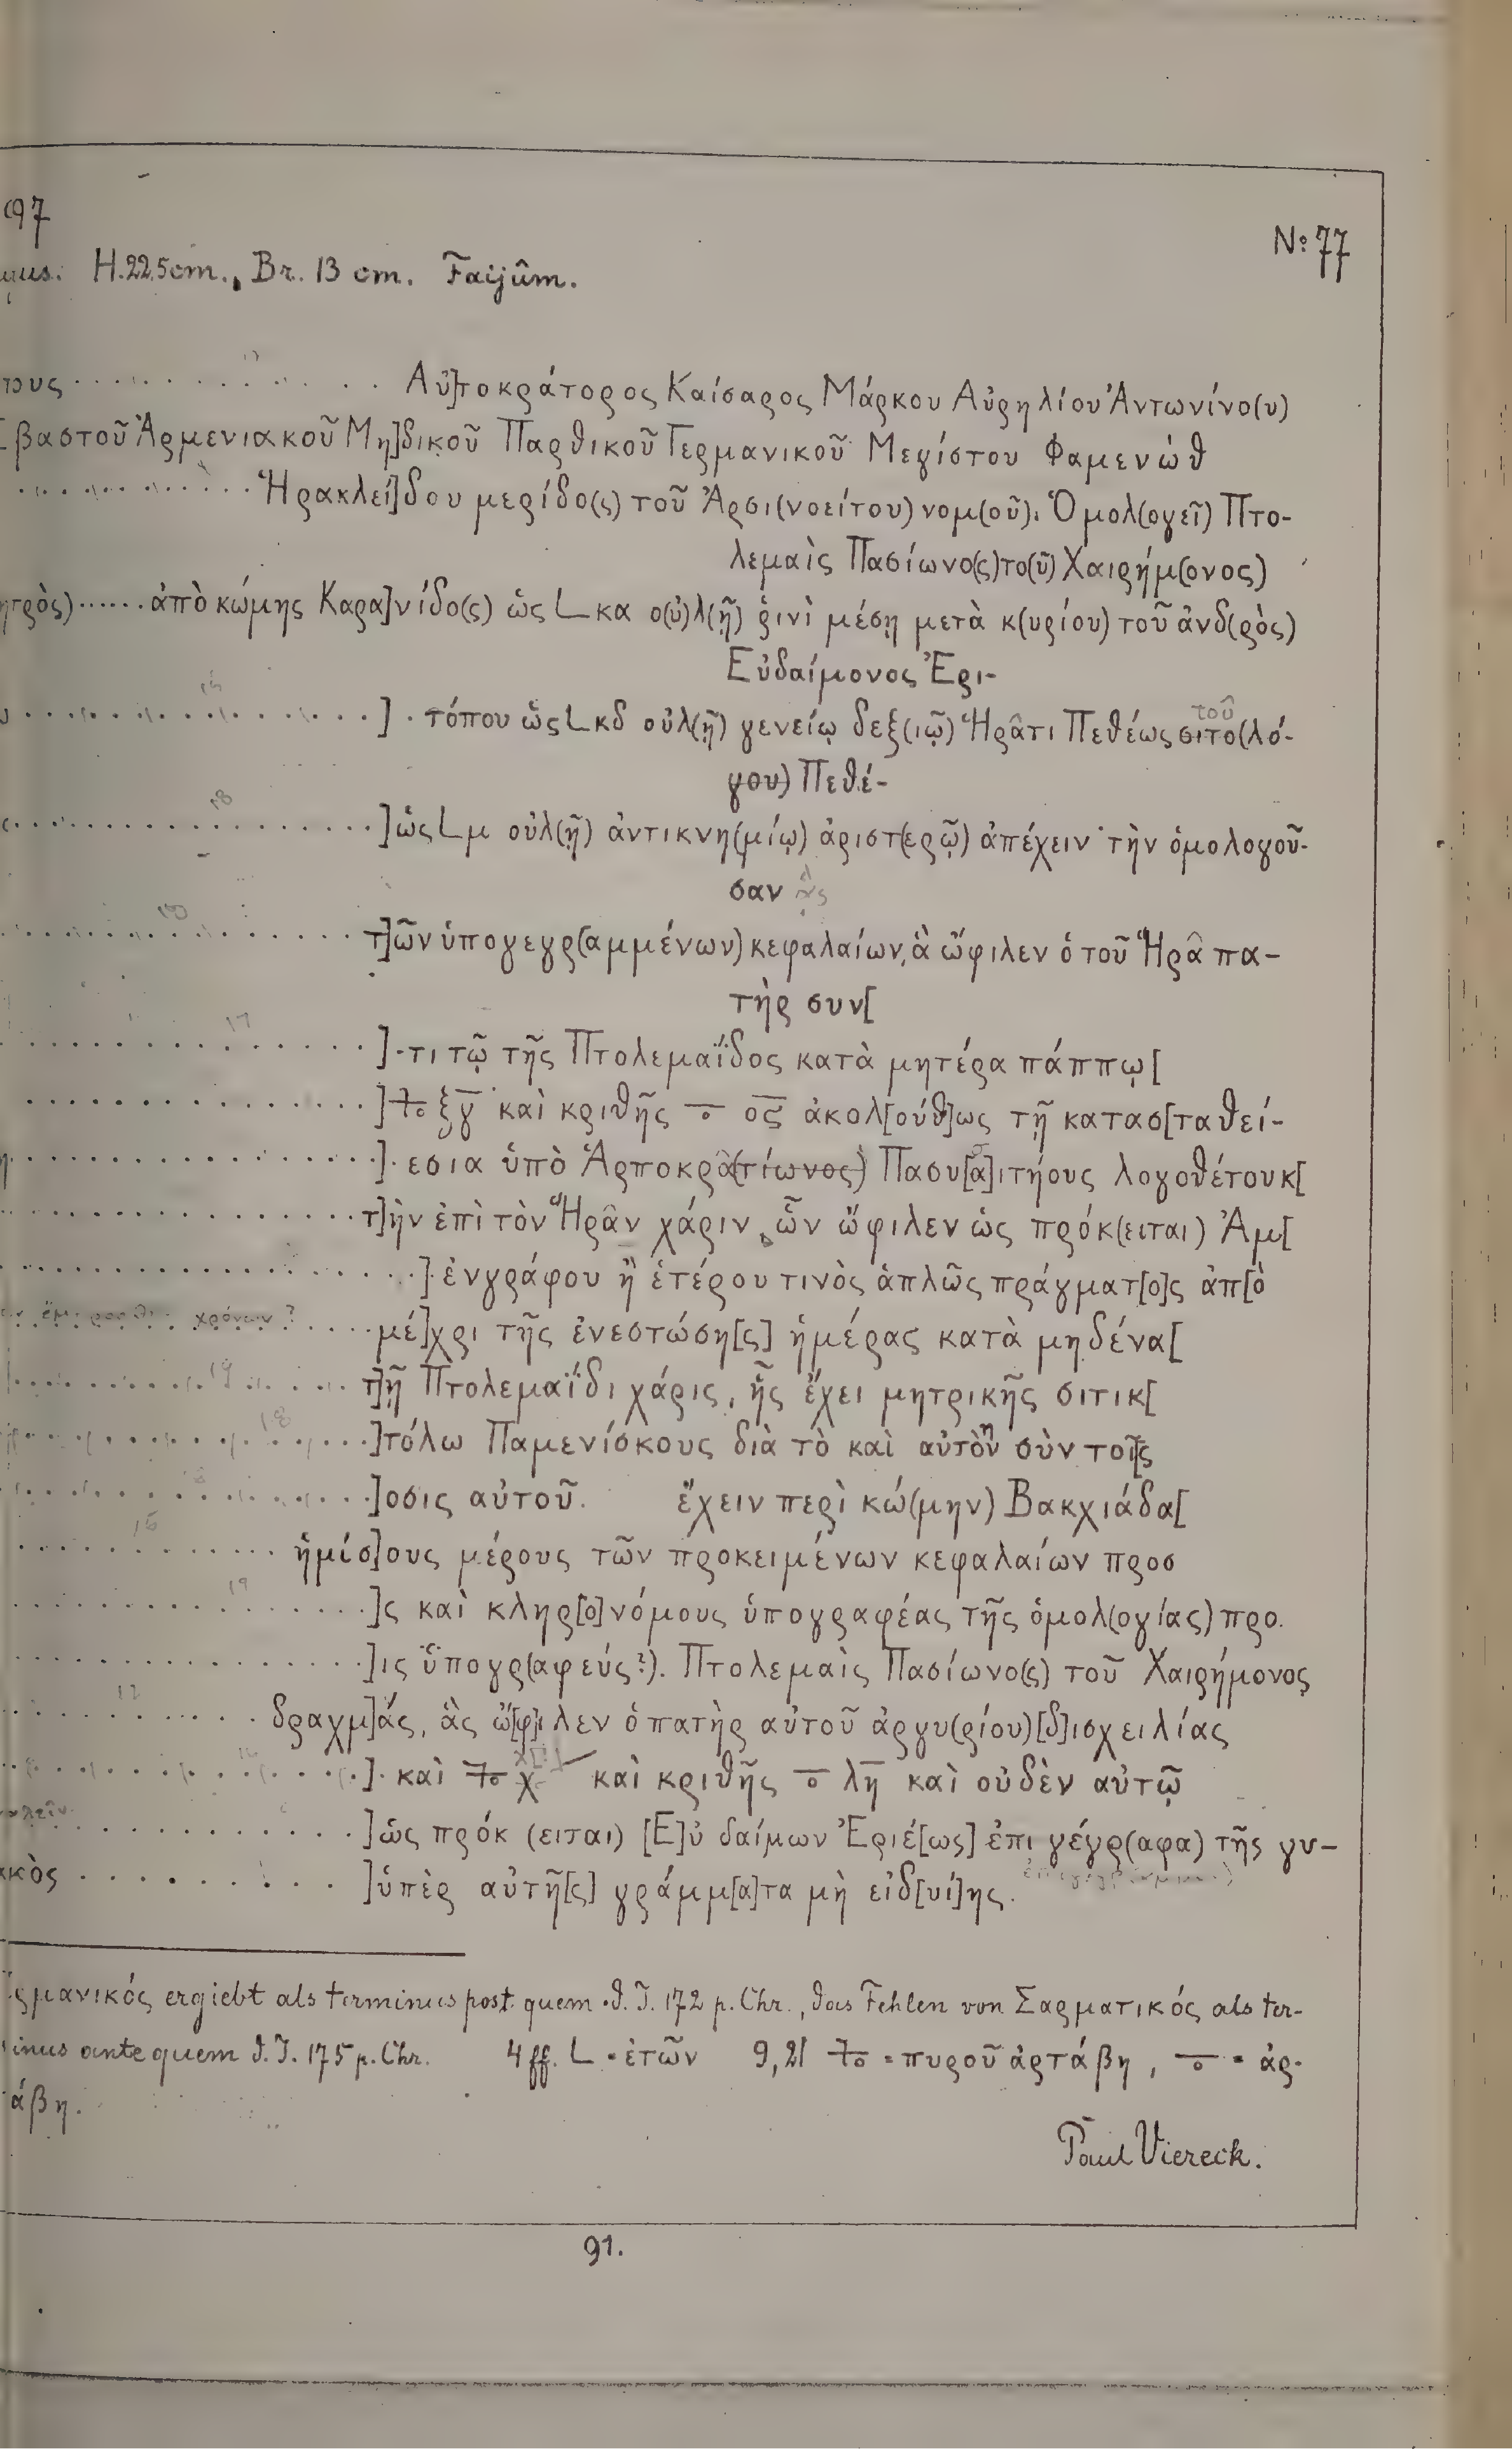 97
No 77
H. 22.5 cm., Br. 13 cm. Faijûm.
τους . . . . . . . . . . Αὐ]τοκράτορος Καίσαρος Μάρκου Αὐρηλίου Ἀντωνίνο(υ)
βαστοῦ Ἀρμενιακοῦ Μη]δικοῦ Παρθικοῦ Γερμανικοῦ Μεγίστου Φαμενὼθ
. . . . . . . . . . Ἡρακλεί]δου μερίδο(ς) τοῦ Ἀρσι(νοείτου) νομ(οῦ). Ὁμολ(ογεῖ) Πτο-
λεμαὶς Πασίωνο(ς) το(ῦ) Χαιρήμ(ονος)
ητρὸς) ...... ἀπὸ κώμης Καρα]νίδο(ς) ὡς L κα ο(ὐ)λ(ῇ) ῥινὶ μέσῃ μετὰ κ(υρίου) τοῦ ἀνδ(ρὸς)
Εὐδαίμονος Ἐρι-
. . . . . . . . . . ] . τόπου ὡς L κδ οὐλ(ῇ) γενείῳ δεξ(ιῷ) Ἡρᾶτι Πεθέως σιτο(λό-
τοῦ
γου) Πεθέ-
. . . . . . . . . . ] ὡς L μ οὐλ(ῇ) ἀντικνη(μίῳ) ἀριστ(ερῷ) ἀπέχειν τὴν ὁμολογοῦ-
σαν
. . . . . . . . . . τ]ῶν ὑπογεγρ(αμμένων) κεφαλαίων, ἃ ὤφιλεν ὁ τοῦ Ἡρᾶ πα-
τὴρ συν[
. . . . . . . . . . ] . τι τῷ τῆς Πτολεμαΐδος κατὰ μητέρα πάππῳ[
. . . . . . . . . . ] ξγ καὶ κριθῆς οϛ ἀκολ[ούθ]ως τῇ κατασ[ταθεί-
. . . . . . . . . . ] . εσια ὑπὸ Ἁρποκρᾶ(τίωνος) Πασυ[ά]ιτήους λογοθέτου κ[
. . . . . . . . . . τ]ὴν ἐπὶ τὸν Ἡρᾶν χάριν, ὧν ὤφιλεν ὡς πρόκ(ειται) Ἀμ[
. . . . . . . . . . ] . ἐνγράφου ἢ ἑτέρου τινὸς ἁπλῶς πράγματ[ο]ς ἀπ[ὸ
χρόνων? . . . . μέ]χρι τῆς ἐνεστώση[ς] ἡμέρας κατὰ μηδένα[
. . . . . . . . . . τ]ῇ Πτολεμαΐδι χάρις, ἧς ἔχει μητρικῆς σιτικ[
. . . . . . . . . . ]τόλω Παμενίσκους διὰ τὸ καὶ αὐτὸν σὺν τοῖ[ς
. . . . . . . . . . ]οσις αὐτοῦ. ἔχειν περὶ κώ(μην) Βακχιάδα[
. . . . . . . . . . ἡμίσ]ους μέρους τῶν προκειμένων κεφαλαίων προσ
. . . . . . . . . . ]ς καὶ κληρ[ο]νόμους ὑπογραφέας τῆς ὁμολ(ογίας) προ.
. . . . . . . . . . ]ις ὑπογρ(αφεύς?). Πτολεμαὶς Πασίωνο(ς) τοῦ Χαιρήμονος
. . . . . . . . . . δραχμ]άς, ἃς ὤ[φ]ιλεν ὁ πατὴρ αὐτοῦ ἀργυ(ρίου) [δ]ισχειλίας
. . . . . . . . . . ] . καὶ χ καὶ κριθῆς λη καὶ οὐδὲν αὐτῷ
. . . . . . . . . . ] ὡς πρόκ(ειται) [Ε]ὐδαίμων Ἐριέ[ως] ἐπιγέγρ(αφα) τῆς γυ-
ακὸς . . . . . . . . . . ] ὑπὲρ αὐτῆ[ς] γράμμ[α]τα μὴ εἰδ[υί]ης.
ερμανικός ergiebt als terminus post quem d. J. 172 p. Chr., das Fehlen von Σαρματικός als ter-
minus ante quem d. J. 175 p. Chr. 4 ff. L = ἐτῶν 9, 21 = πυροῦ ἀρτάβη, = ἀρ-
άβη.
Paul Viereck.
91.